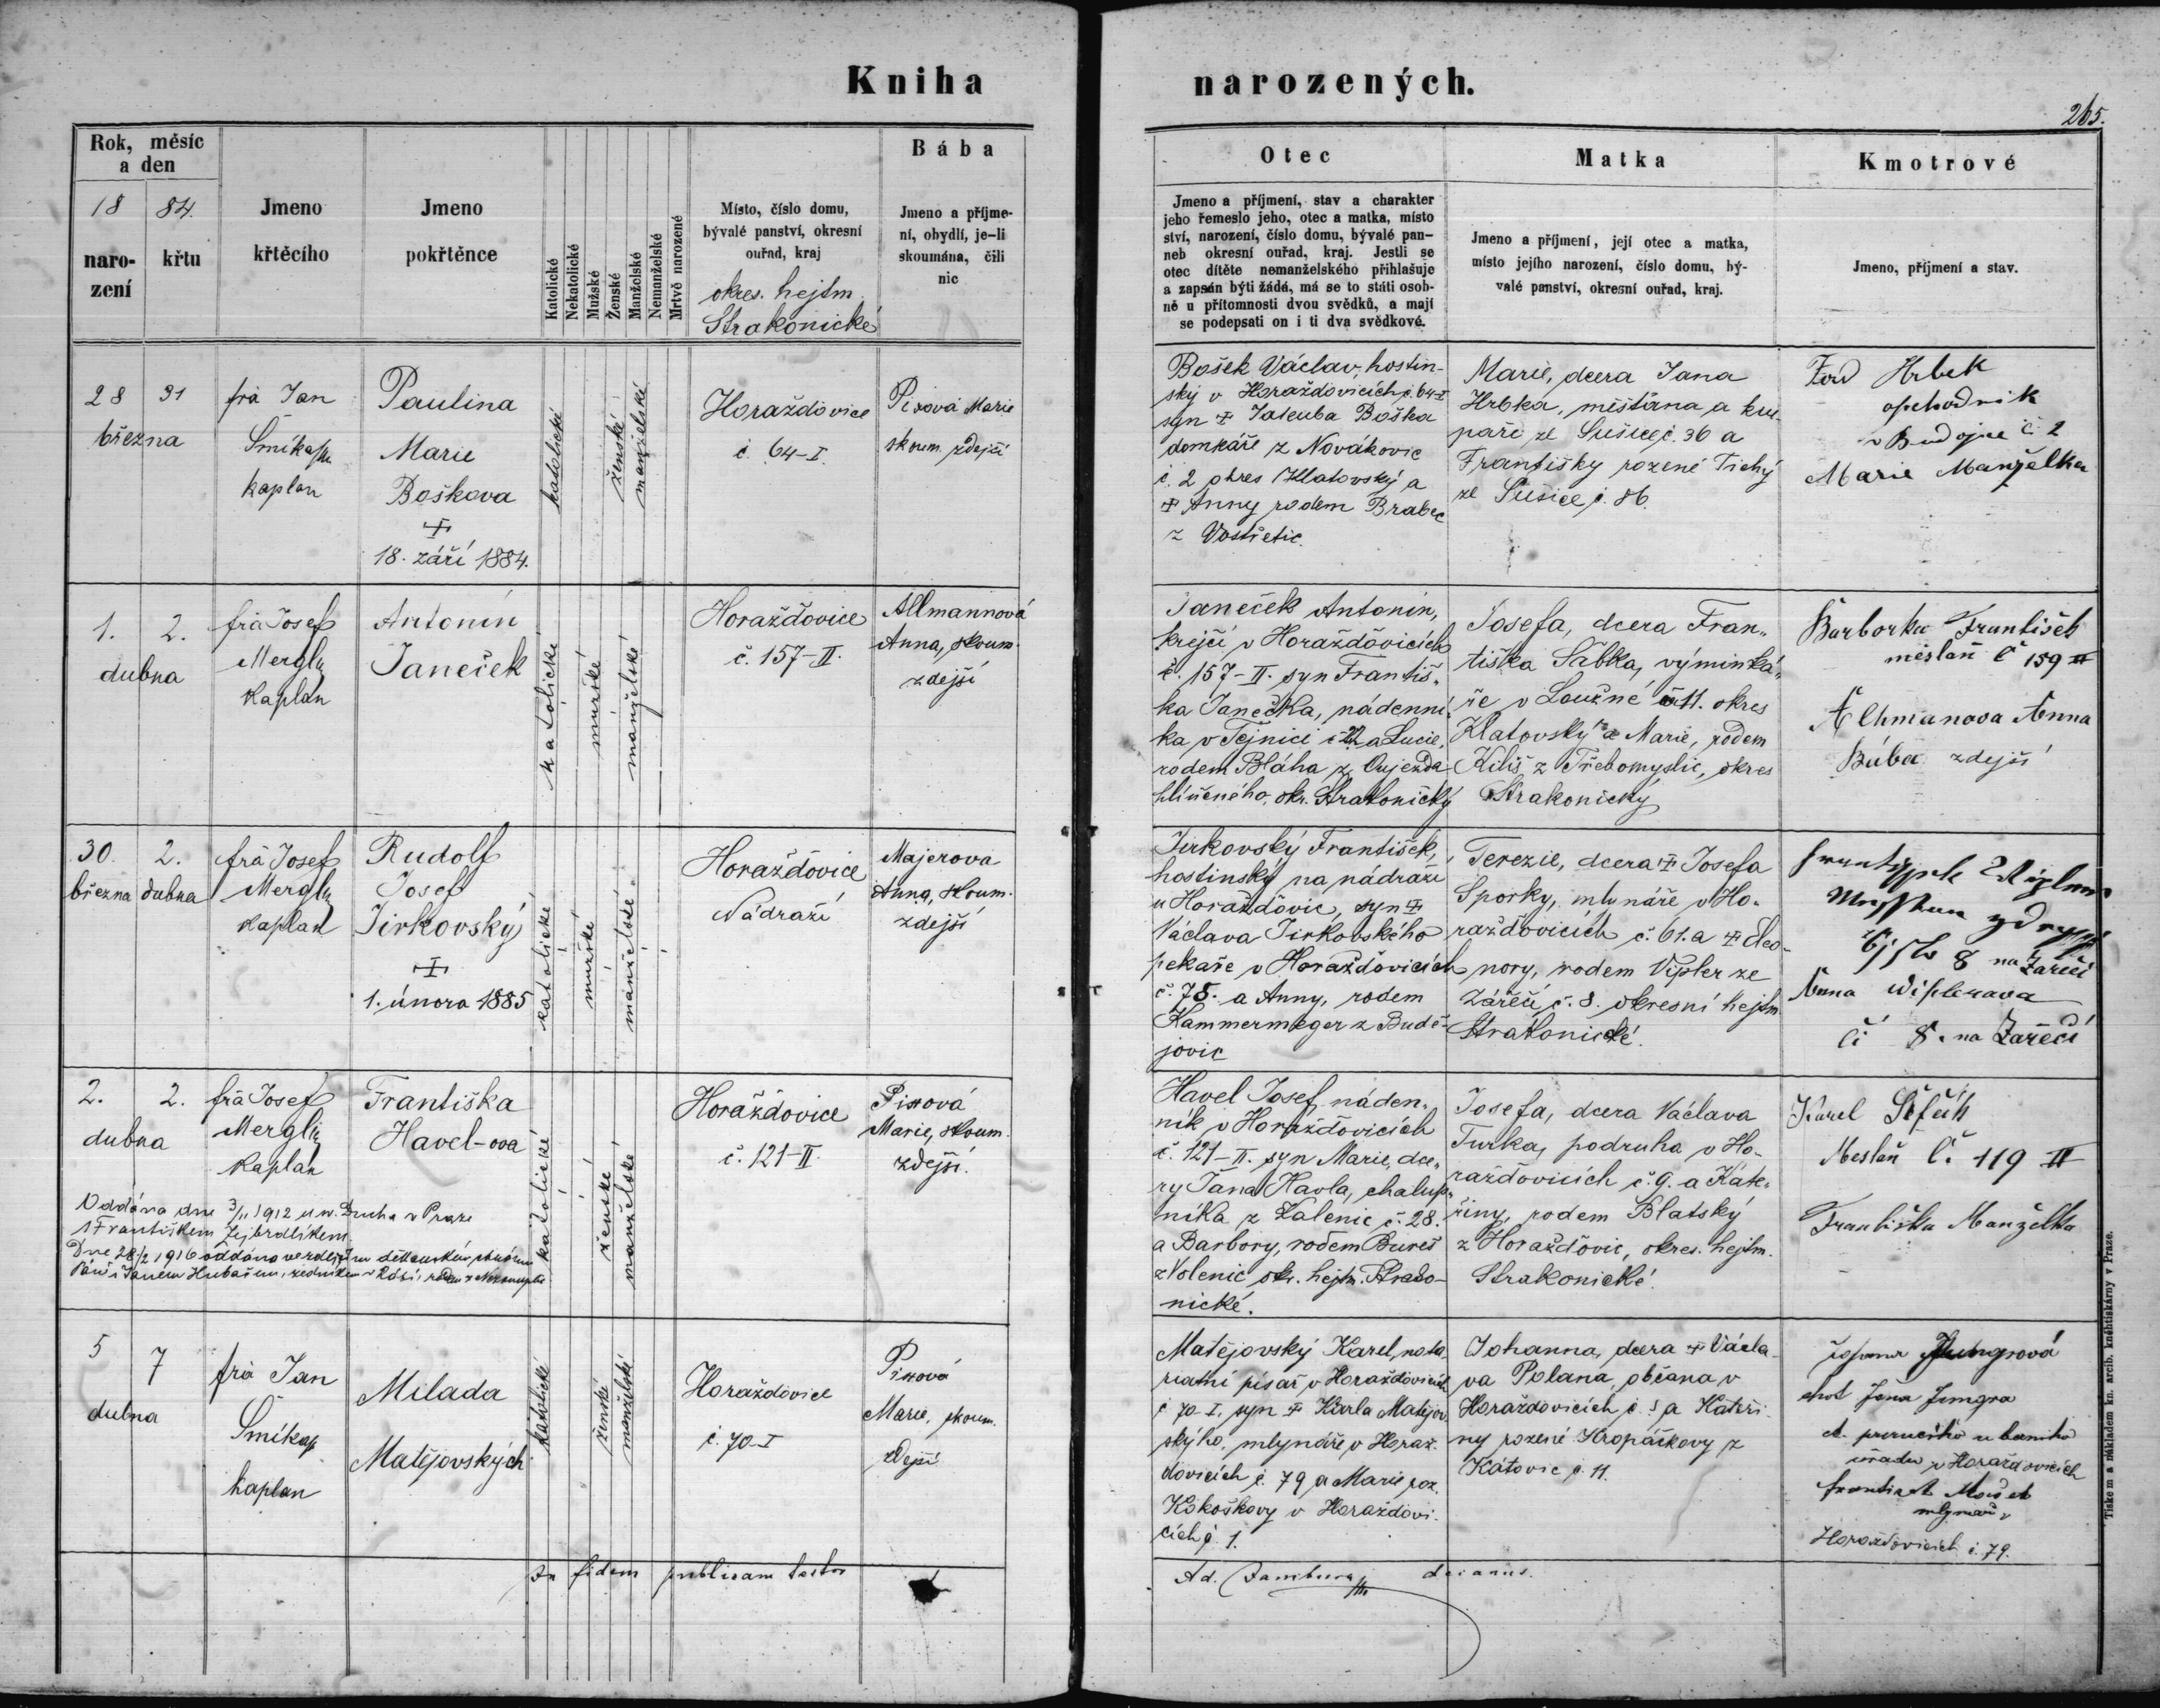 Kniha narozených.
265.
Rok, měsíc
a den
18 84.
naro-
zení
křtu
Jmeno
křtěcího
Jmeno
pokřtěnce
Katolické
Nekatolické
Mužské
Ženské
Manželské
Nemanželské
Mrtvě narozené
Místo, číslo domu,
bývalé panství, okresní
ouřad, kraj
okres. hejtm.
Strakonické
Bába
Jmeno a příjme-
ní, obydlí, je-li
skoumána, čili
nic
Otec
Jmeno a příjmení, stav a charakter
jeho řemeslo jeho, otec a matka, místo
ství, narození, číslo domu, bývalé pan-
neb okresní ouřad, kraj. Jestli se
otec dítěte nemanželského přihlašuje
a zapsán býti žádá, má se to státi osob-
ně u přítomnosti dvou svědků, a mají
se podepsati on i ti dva svědkové.
Matka
Jmeno a příjmení, její otec a matka,
místo jejího narození, číslo domu, bý-
valé panství, okresní ouřad, kraj.
Kmotrové
Jmeno, příjmení a stav.
28 31
března
frá Jan
kaplan
Paulina
Marie
Boškova
18. září 1884.
katolické
ženské
manželské
Horaždovice
č. 64-I.
Pixová Marie
skoum. zdejší
Bošek Václav, hostin-
ský v Horaždovicích č. 64-I
syn Jakuba Boška
domkáře z Novákovic
č. 2 okres Klatovský a
Anny rodem Brabec
z Vostřetic.
Marie, dcera Jana
Hrbka, měšťana a kru-
paře ze Sušice č. 36 a
Františky rozené Tichý
ze Sušice č. 86.
Ferd Hrbek
obchodník
č. 2
Marie Manželka
1. 2.
dubna
frá Josef
Mergl
kaplán
Antonín
Janeček
katolické
mužské
manželské
Horažďovice
č. 157-II.
Allmannová
Anna, skoum.
zdejší
Janeček Antonín,
krejčí v Horažďovicích
č. 157-II. syn Františ-
ka Janečka, nádenní-
ka v Tejnici č 22 a Lucie,
rodem Bláha z Oujezda
hliněného, okr. Strakonický
Josefa, dcera Fran-
tiška Šabka, výminká-
ře v Loužné č 11. okres
Klatovský a Marie, rodem
Kiliš z Třebomyslic, okres
Strakonický
Barborka František
měšťan č 159 II
Allmanova Anna
Bába zdejší
30. 2.
března dubna
frá Josef
Mergl
kaplan
Rudolf
Josef
Jirkovský
1. února 1885
katolické
mužské
manželské
Horažďovice
Nádraží
Majerova
Anna, skoum.
zdejší
Jirkovský František,
hostinský na nádraží
u Horažďovic, syn
Václava Jirkovského
pekaře v Horažďovicích
č. 78. a Anny, rodem
Kammermeger z Budě-
jovic
Terezie, dcera Josefa
Sporky, mlynáře v Ho-
ražďovicích č. 61. a Eleo-
nory, rodem Vipler ze
Zářečí, č. 8. okresní hejtm.
Strakonické.
8 na Zářečí
Anna Wiplerava
či 8. na Zářečí
2. 2.
dubna
frá Josef
Mergl
kaplán
Františka
Havel-ova
katolické
ženské
manželské
Horažďovice
č. 121-II.
Pixová
Marie, skoum.
zdejší.
Oddána dne 3/11 1912 u sv. Ducha v Praze
s Františkem Zejbrdlíkem
Dne 28/2 1916 oddána
Havel Josef, náden-
ník v Horažďovicích
č. 121-II. syn Marie, dce-
ry Jana Havla, chalup-
níka z Zalenic č. 28.
a Barbory, rodem Bureš
z Volenic okr. hejtm. Strako-
nické.
Josefa, dcera Václava
Turka, podruha v Ho-
ražďovicích č. 9. a Kate-
řiny, rodem Blatský
z Horažďovic, okres. hejtm.
Strakonické.
Karel
Mesťan č. 119 II
Františka Manželka
5 7
dubna
frá Jan
kaplan
Milada
Matějovských
katolické
ženské
manželské
Horaždovice
č. 70-I
Pixová
Marie, skoum.
zdejší
Matějovský Karel, nota-
rialní písař v Horaždovicích
č 70-I, syn Karla Matějov-
ského, mlynáře v Horaž-
dovicích č. 79 a Marie roz.
Kokoškovy v Horaždovi-
cích č. 1.
Johanna, dcera Václa-
va Polana, občana v
Horaždovicích č. 5 a Kateři-
ny rozené Kropáčkovy z
Kátovic č. 11.
Jungrová
choť Jana Jungra
úřadu v Horažďovicích
mlynář v
Horaždovicích č. 79.
In fidem publicam testor
Ad. Jambura decanus.
Tiskem a nákladem kn. arcib. knihtiskárny v Praze.